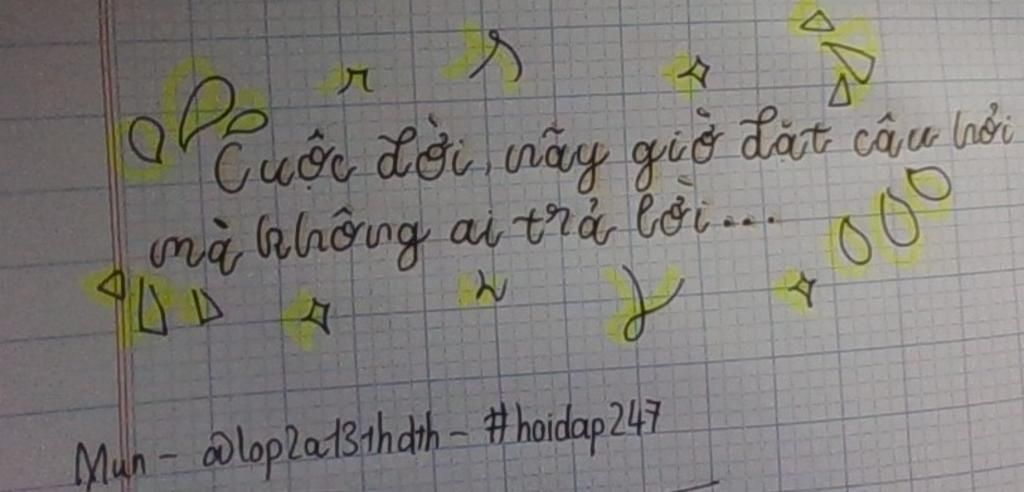 Cuộc đời, nãy giờ đặt câu hỏi
mà không ai trả lời...
Mun - @lop2a13thdth - #hoidap247